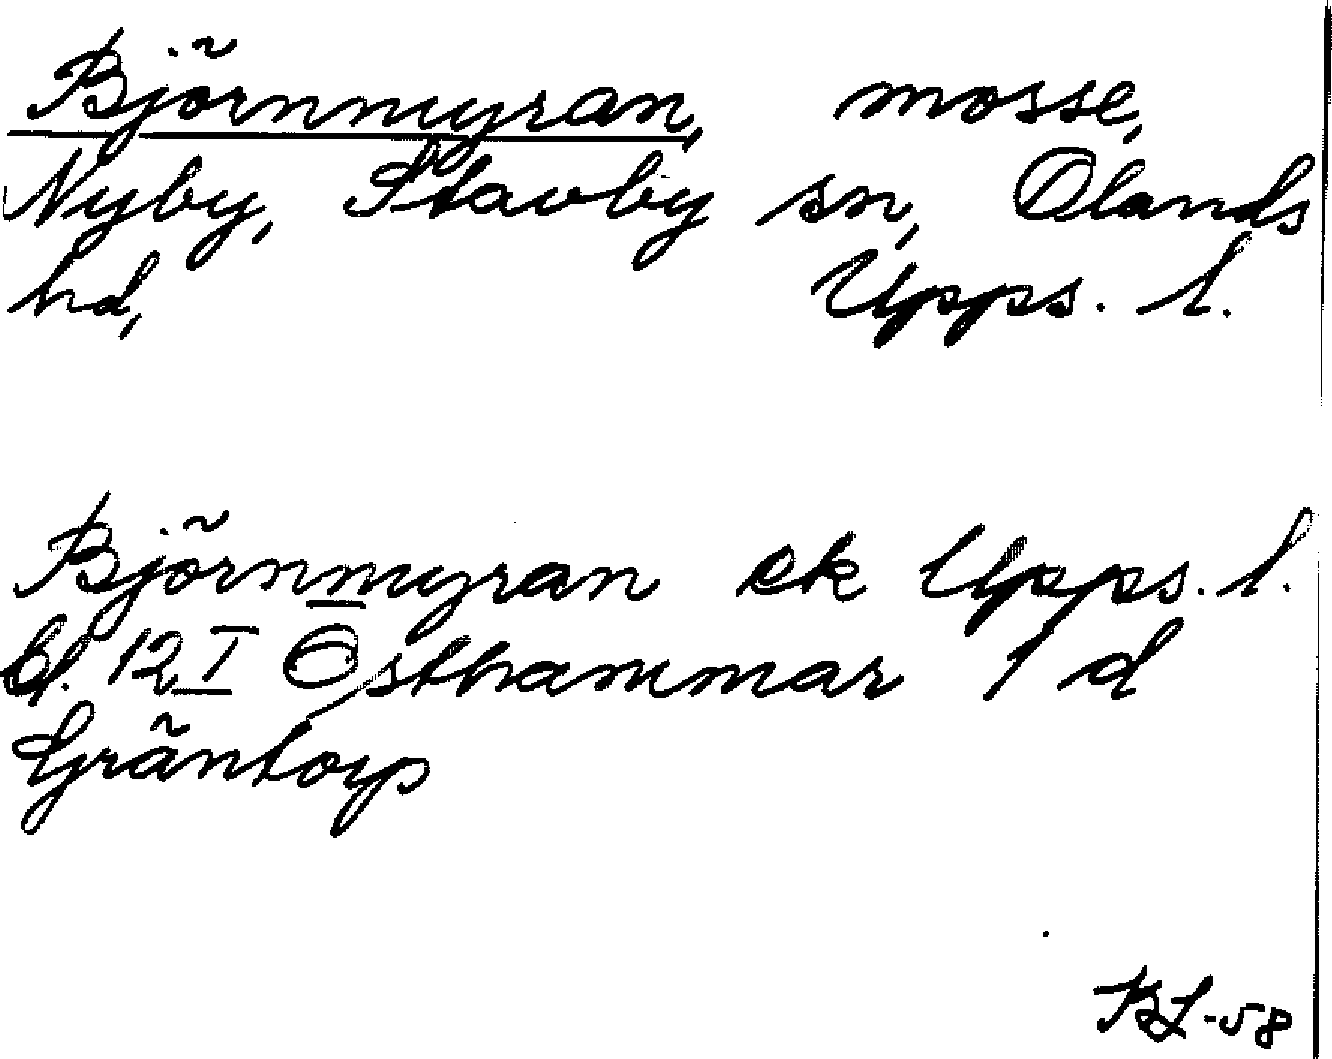 Björnmyran, mosse,
Nyby, Stavby sn, Olands
hd, Upps. l.
Björnmyran ek Upps. l.
bl. 12 I Östhammar 1 d
Gräntorp
BL-58